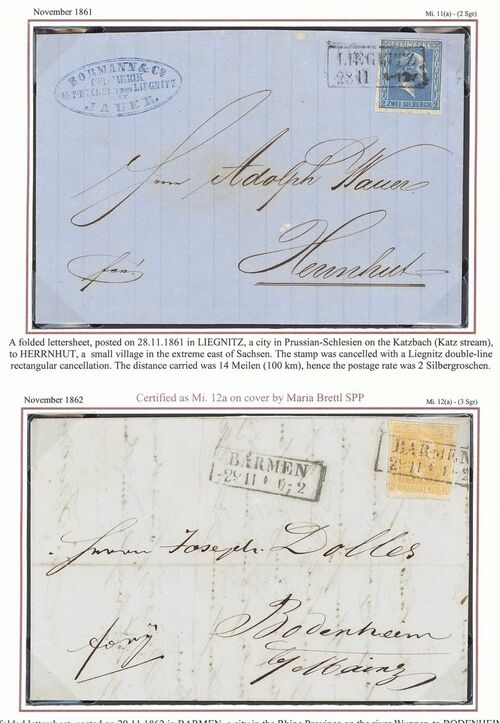 November 1861
Mi. 11(a) - (2 Sgr)
LIEGNITZ
28 11
JAUER.
2 ZWEI SILBERGR. 2
Herrn Adolph Wauer
Herrnhut
A folded lettersheet, posted on 28.11.1861 in LIEGNITZ, a city in Prussian-Schlesien on the Katzbach (Katz stream),
to HERRNHUT, a small village in the extreme east of Sachsen. The stamp was cancelled with a Liegnitz double-line
rectangular cancellation. The distance carried was 14 Meilen (100 km), hence the postage rate was 2 Silbergroschen.
November 1862
Certified as Mi. 12a on cover by Maria Brettl SPP
Mi. 12(a) - (3 Sgr)
BARMEN
29 11
BARMEN
29 11
Herrn Joseph Dolles
Bodenheim
b/Mainz
folded lettersheet, posted on 29.11.1862 in BARMEN, a city in the Rhine Province on the